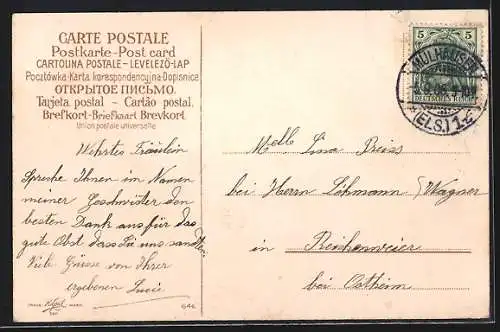 CARTE POSTALE
Postkarte - Post card
CARTOLINA POSTALE - LEVELEZŐ-LAP
Pocztówka - Karta korespondencyjna - Dopisnice
ОТКРЫТОЕ ПИСЬМО.
Tarjeta postal - Cartão postal.
Brefkort - Briefkaart Brevkort.
Union postale universelle
5 5
DEUTSCHES REICH
MÜLHAUSEN
(ELS.) 1 c
Wehrtes Fräulein
Spreche Ihnen im Namen
meiner Geschwister den
besten Dank aus für das
gute Obst dass Sie uns sandten
Viele Grüsse von Ihrer
ergebenen Lucie
Melle Lina Preiss
bei Herrn Löhmann / Wagner
in Reichenweier
bei Ostheim